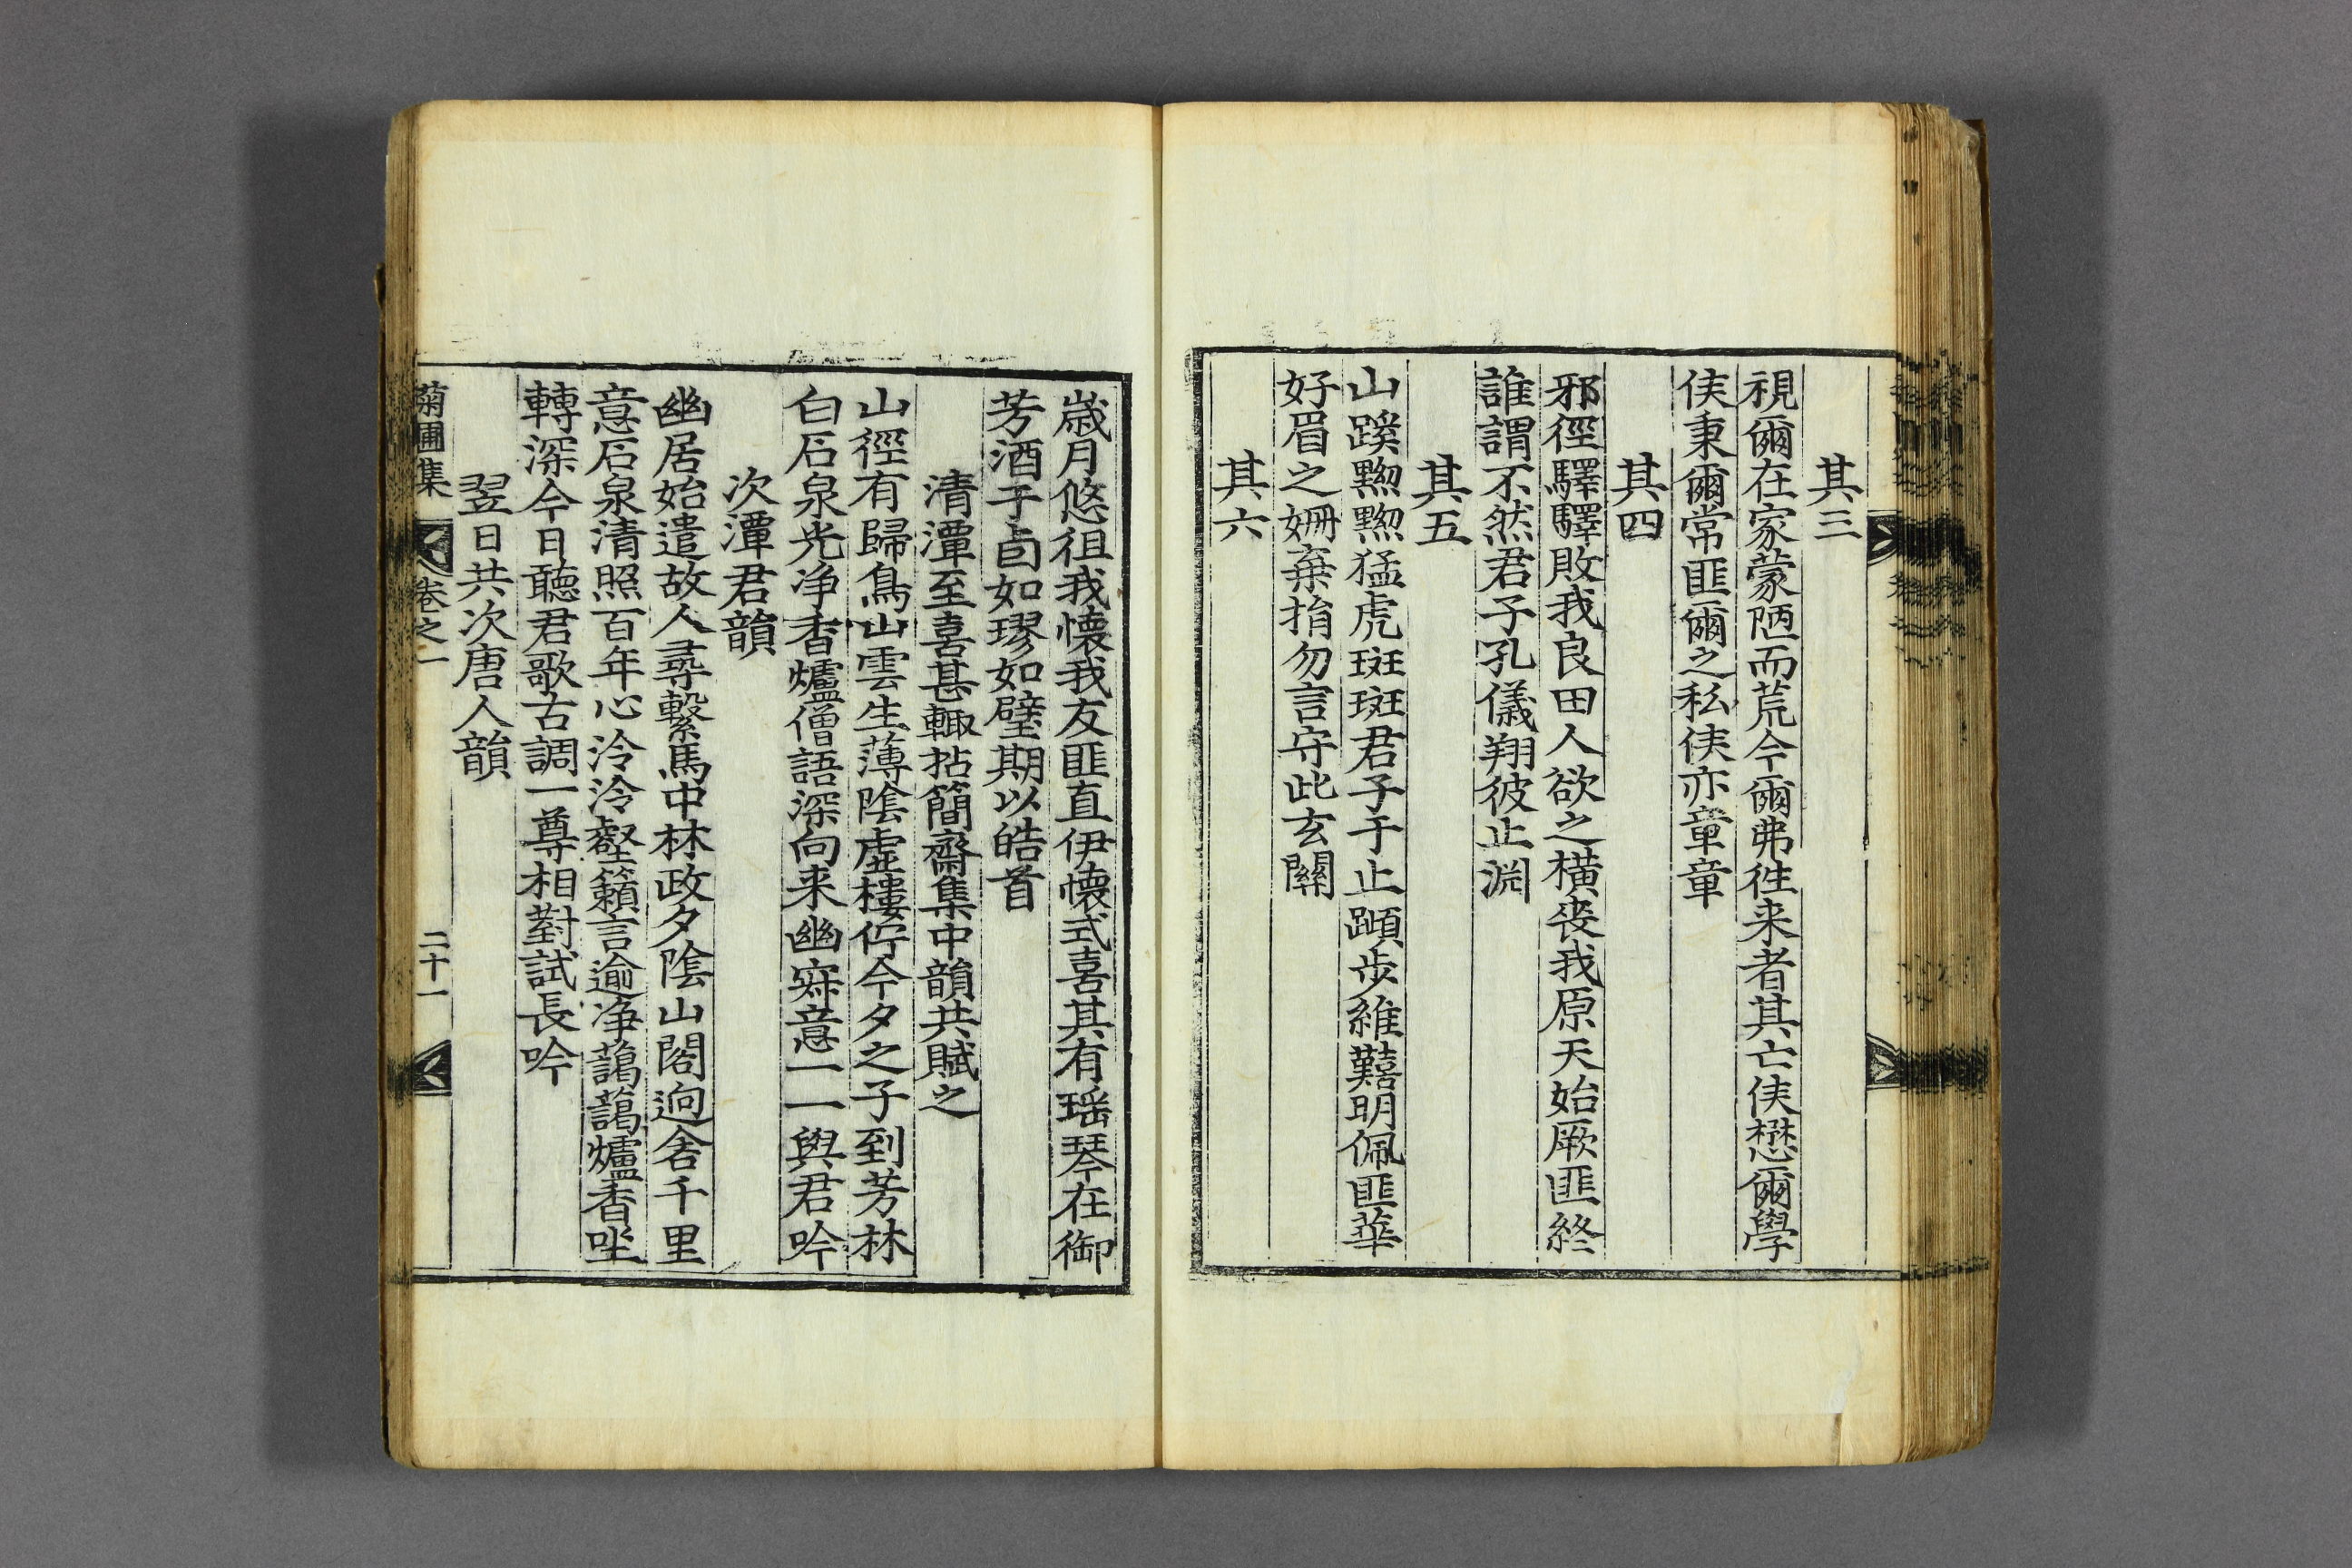 其三
視爾在家蒙陋而荒今爾弗徃来者其亡俟懋爾學
俟秉爾常匪爾之私俟亦章章
其四
邪徑驛驛敗我良田人欲之橫喪我原天始厥匪終
誰謂不然君子孔儀翔彼止淵
其五
山蹊黝黝猛虎斑斑君子于止蹞步維囏明佩匪華
好眉之姍棄捐勿言守此玄關
其六
歲月悠徂我懷我友匪直伊懷式喜其有瑤琴在御
芳酒于卣如璆如璧期以皓首
清潭至喜甚輒拈簡齋集中韻共賦之
山徑有歸鳥山雲生薄陰虛樓佇今夕之子到芳林
白石泉光净香爐僧語深向来幽寂意一一與君吟
次潭君韻
幽居始遣故人尋繫馬中林政夕陰山閣逈含千里
意石泉清照百年心泠泠壑籟言逾净藹藹爐香坐
轉深今日聽君歌古調一尊相對試長吟
翌日共次唐人韻
菊圃集 卷之一 二十一